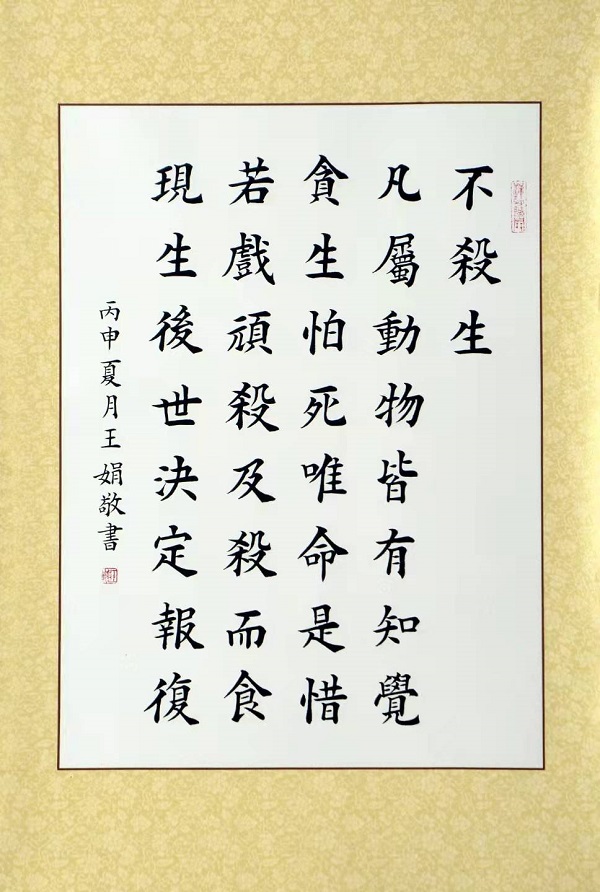 不殺生
凡屬動物皆有知覺
貪生怕死唯命是惜
若戲頑殺及殺而食
現生後世決定報復
丙申夏月王娟敬書